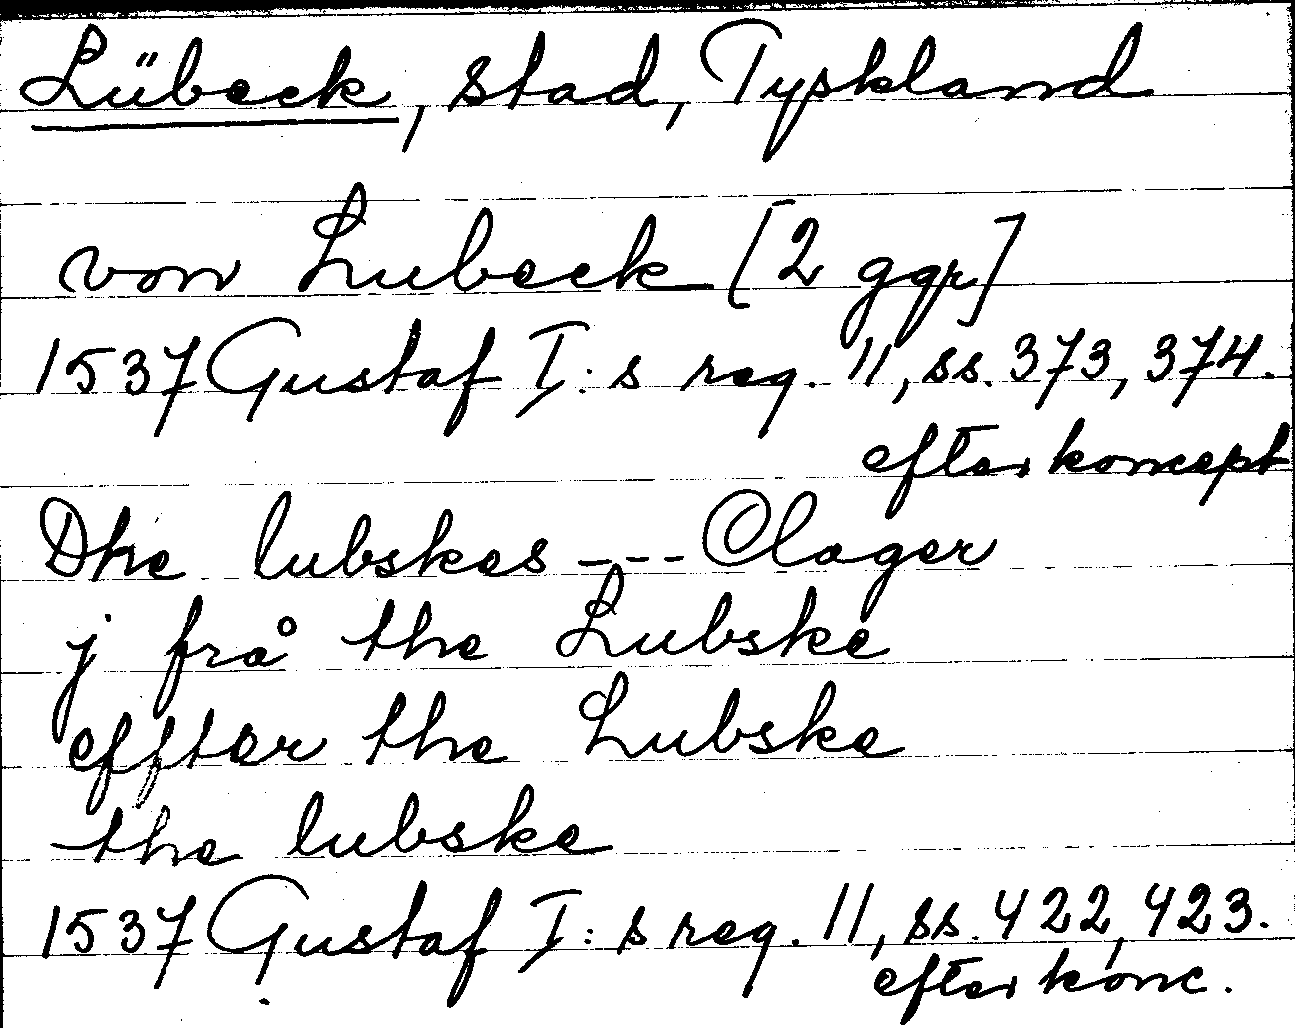 Lübeck, stad, Tyskland
von Lubeck [2 ggr]
1537 Gustaf I:s reg. 11, ss. 373, 374.
efter koncept
Dhe lubskes --- Clager
j frå the Lubske
effter the Lubske
the lubske
1537 Gustaf I:s reg. 11, ss. 422, 423.
efter konc.